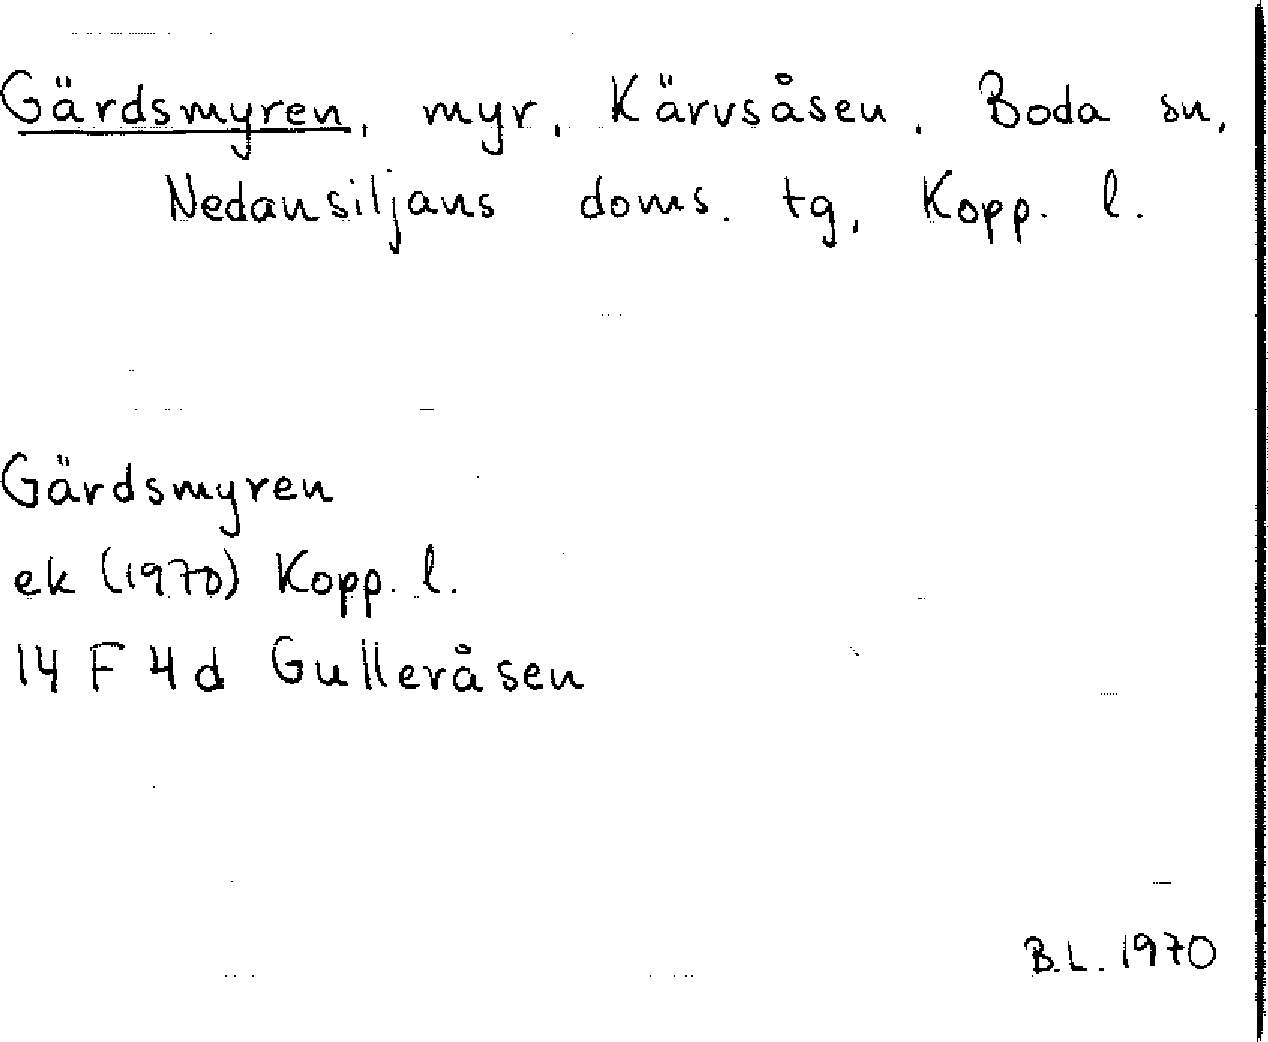 Gärdsmyren, myr, Kärvsåsen, Boda sn,
Nedansiljans doms. tg, Kopp. l.
Gärdsmyren
ek (1970) Kopp. l.
14 F 4d Gulleråsen
B.L. 1970